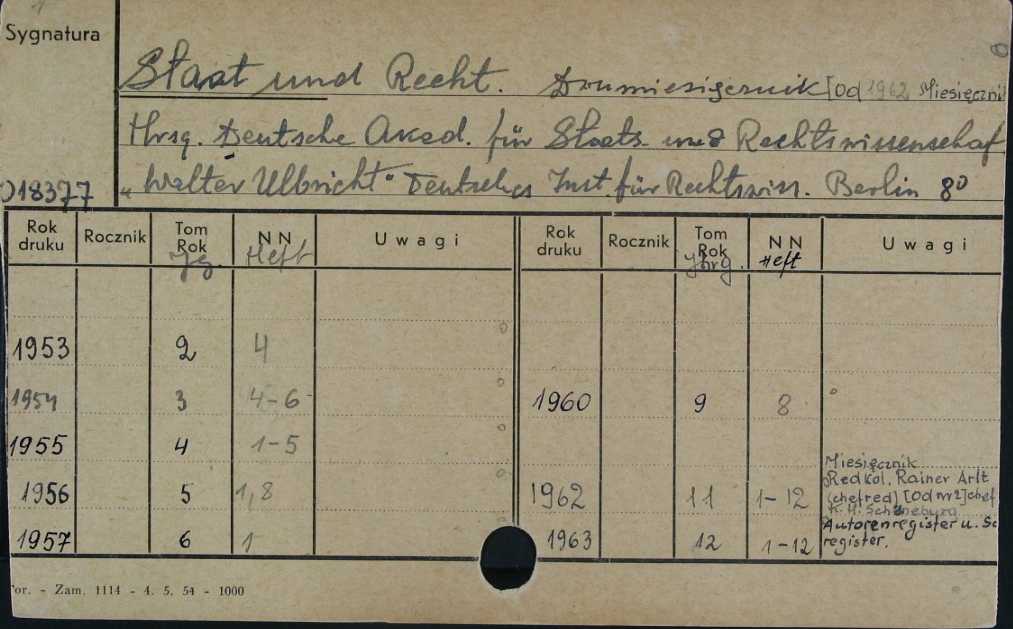 Sygnatura
Staat und Recht. Dwumiesięcznik [Od 1962 Miesięcznik
Hrsg. Deutsche Akad. für Staats- und Rechtswissenschaf
018377 "Walter Ulbricht" Deutsches Inst. für Rechtswiss. Berlin 8°
Rok druku Rocznik Tom Rok Jg NN Heft Uwagi Rok druku Rocznik Tom Rok Jhrg. NN Heft Uwagi
1953 2 4
1954 3 4-6 1960 9 8
1955 4 1-5
Miesięcznik
1956 5 1,8 1962 11 1-12 Redkol. Rainer Arlt
(chefred) [Od nr 2] chef
K. H. Schöneburg
1957 6 1 1963 12 1-12 Autorenregister u. Sc
register.
or. - Zam. 1114 - 4. 5. 54 - 1000